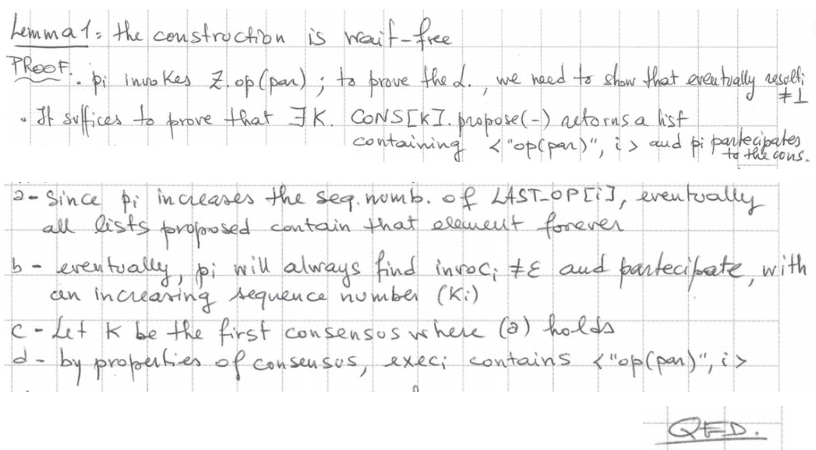 Lemma 1: the construction is wait-free
PROOF. • pi invokes Z.op(par) ; to prove the L., we need to show that eventually resulti ≠⊥
• It suffices to prove that ∃K. CONS[K].propose(-) returns a list
containing <"op(par)", i> and pi partecipates to the cons.
a- Since pi increases the seq. numb. of LAST-OP[i], eventually
all lists proposed contain that element forever
b - eventually, pi will always find invoci ≠ε and partecipate, with
an increasing sequence number (Ki)
c - Let K be the first consensus where (a) holds
d - by properties of consensus, execi contains <"op(par)", i>
QED.